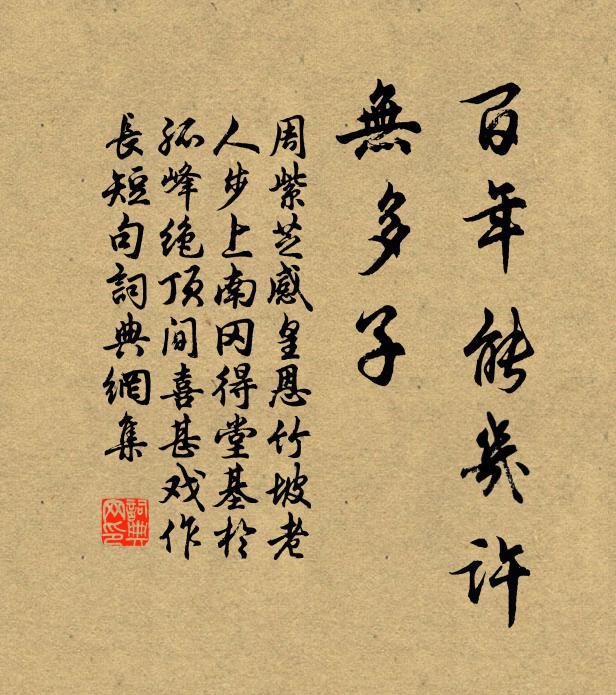 百年能幾許
無多子
周紫芝感皇恩竹坡老
人步上南冈得堂基於
孤峰绝顶间喜甚戏作
長短句詞典網集
詞典
网印